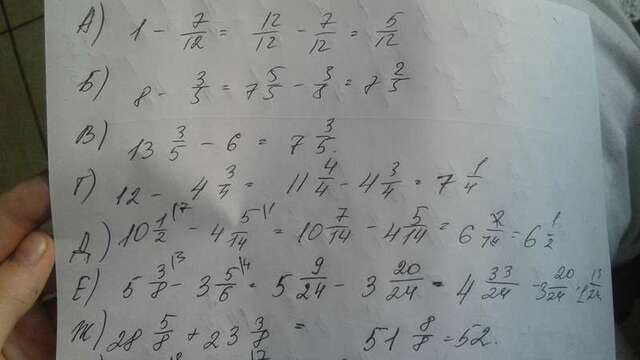 А) 1 - 7/12 = 12/12 - 7/12 = 5/12
Б) 8 - 3/5 = 7 5/5 - 3/5 = 8 2/5
В) 13 3/5 - 6 = 7 3/5
Г) 12 - 4 3/4 = 11 4/4 - 4 3/4 = 7 1/4
Д) 10 1/2 - 4 5/14 = 10 7/14 - 4 5/14 = 6 2/14 = 6
Е) 5 3/8 - 3 5/6 = 5 9/24 - 3 20/24 = 4 33/24 - 3 20/24 =
Ж) 28 5/8 + 23 3/8 = 51 8/8 = 52.